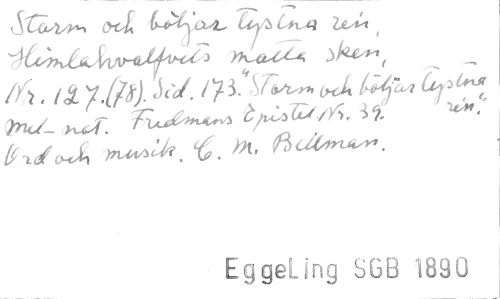 Storm och böljor tystna re'n,
Himlahvalfvets matta sken,
Nr. 127.(78). Sid. 173. "Storm och böljor tystna
mel-not. Fredmans Epistel Nr. 39. re'n."
Ord och musik. C. M. Bellman.
EggeLing SGB 1890